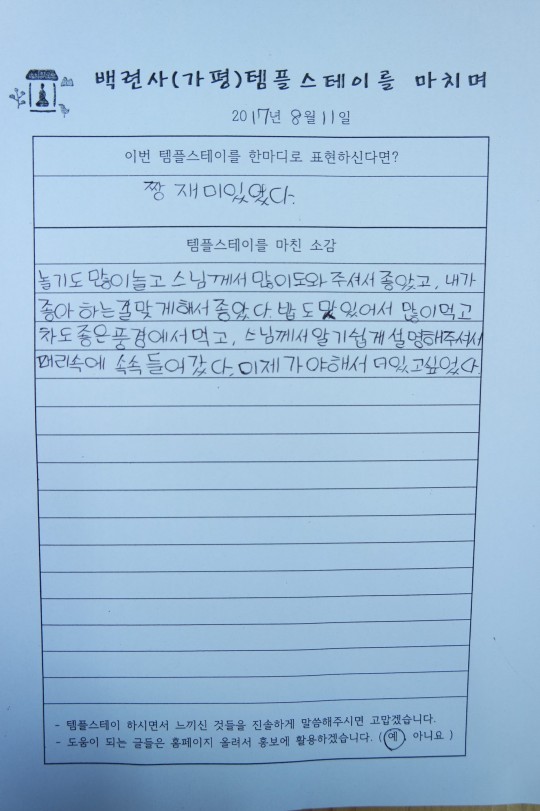 백련사(가평)템플스테이를 마치며
2017년 8월 11일
이번 템플스테이를 한마디로 표현하신다면?
짱 재미있었다.
템플스테이를 마친 소감
놀기도 많이놀고 스님께서 많이도와 주셔서 좋았고, 내가
좋아 하는걸맞게해서 좋았다. 밥도 맛있어서 많이먹고
차도 좋은풍경에서 먹고, 스님께서알기쉽게설명해주셔서
머리속에 쏙쏙 들어갔다. 이제 가야해서 더있고싶었다.
- 템플스테이 하시면서 느끼신 것들을 진솔하게 말씀해주시면 고맙겠습니다.
- 도움이 되는 글들은 홈페이지 올려서 홍보에 활용하겠습니다. ( 예, 아니요 )